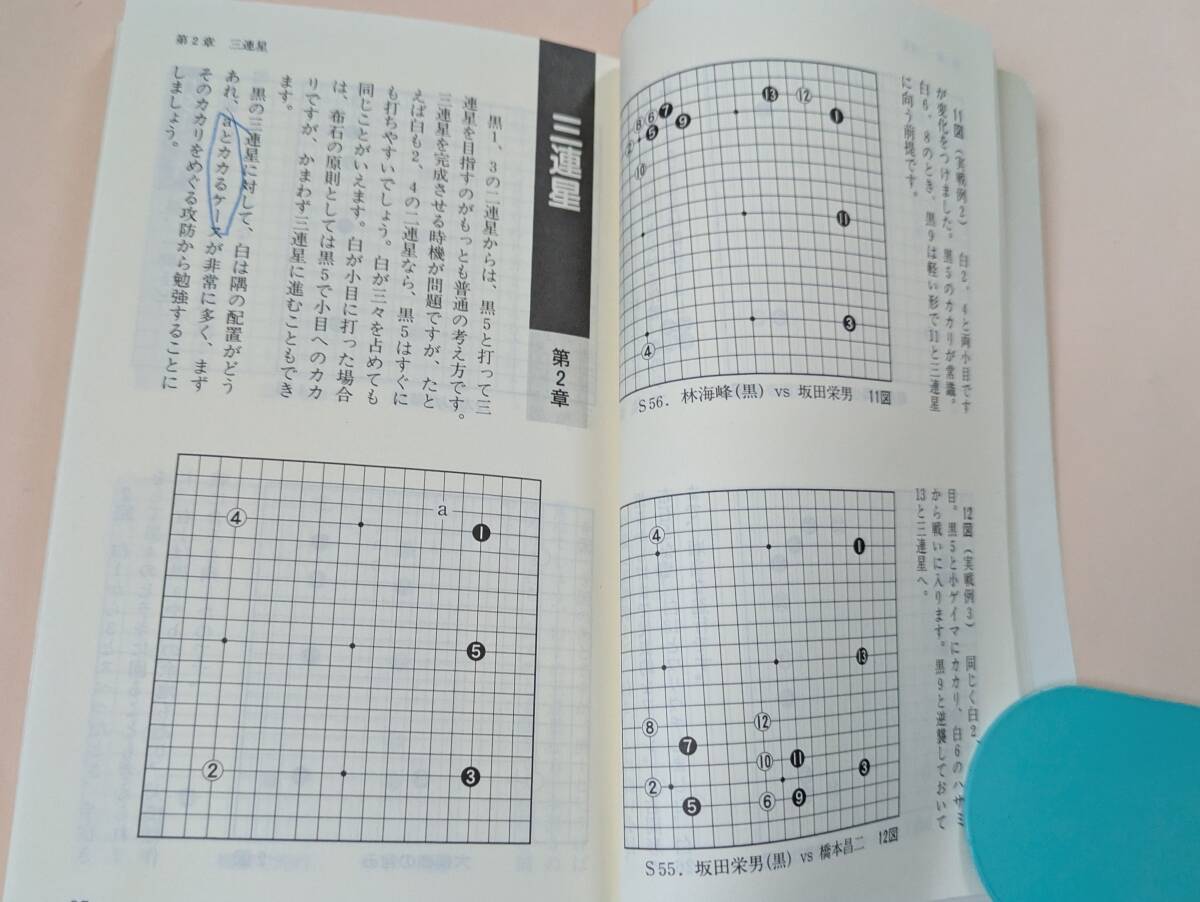 11図（実戦例2）　白2、4と両小目です
が変化をつけました。黒5のカカリが常識。
白6、8のとき、黒9は軽い形で11と三連星
に向う前提です。
⑧⑥❼
②❺❾
⑩
⓭
⑫
❶
⓫
❸
④
S56．林海峰(黒) vs 坂田栄男　11図
12図（実戦例3）　同じく白2、
目。黒5と小ゲイマにカカリ、白6のハサミ
から戦いに入ります。黒9と逆襲しておいて
13と三連星へ。
④
❶
⓭
⑧
❼
⑫
⑩
⓫
❸
②
❺
⑥
❾
S55．坂田栄男(黒) vs 橋本昌二　12図
第2章　三連星
三連星
第2章
黒1、3の二連星からは、黒5と打って三
連星を目指すのがもっとも普通の考え方です。
三連星を完成させる時機が問題ですが、たと
えば白も2、4の二連星なら、黒5はすぐに
も打ちやすいでしょう。白が三々を占めても
同じことがいえます。白が小目に打った場合
は、布石の原則としては黒5で小目へのカカ
リですが、かまわず三連星に進むこともでき
ます。
黒の三連星に対して、白は隅の配置がどう
あれ、aとカカるケースが非常に多く、まず
そのカカリをめぐる攻防から勉強することに
しましょう。
④
a
❶
❺
②
❸